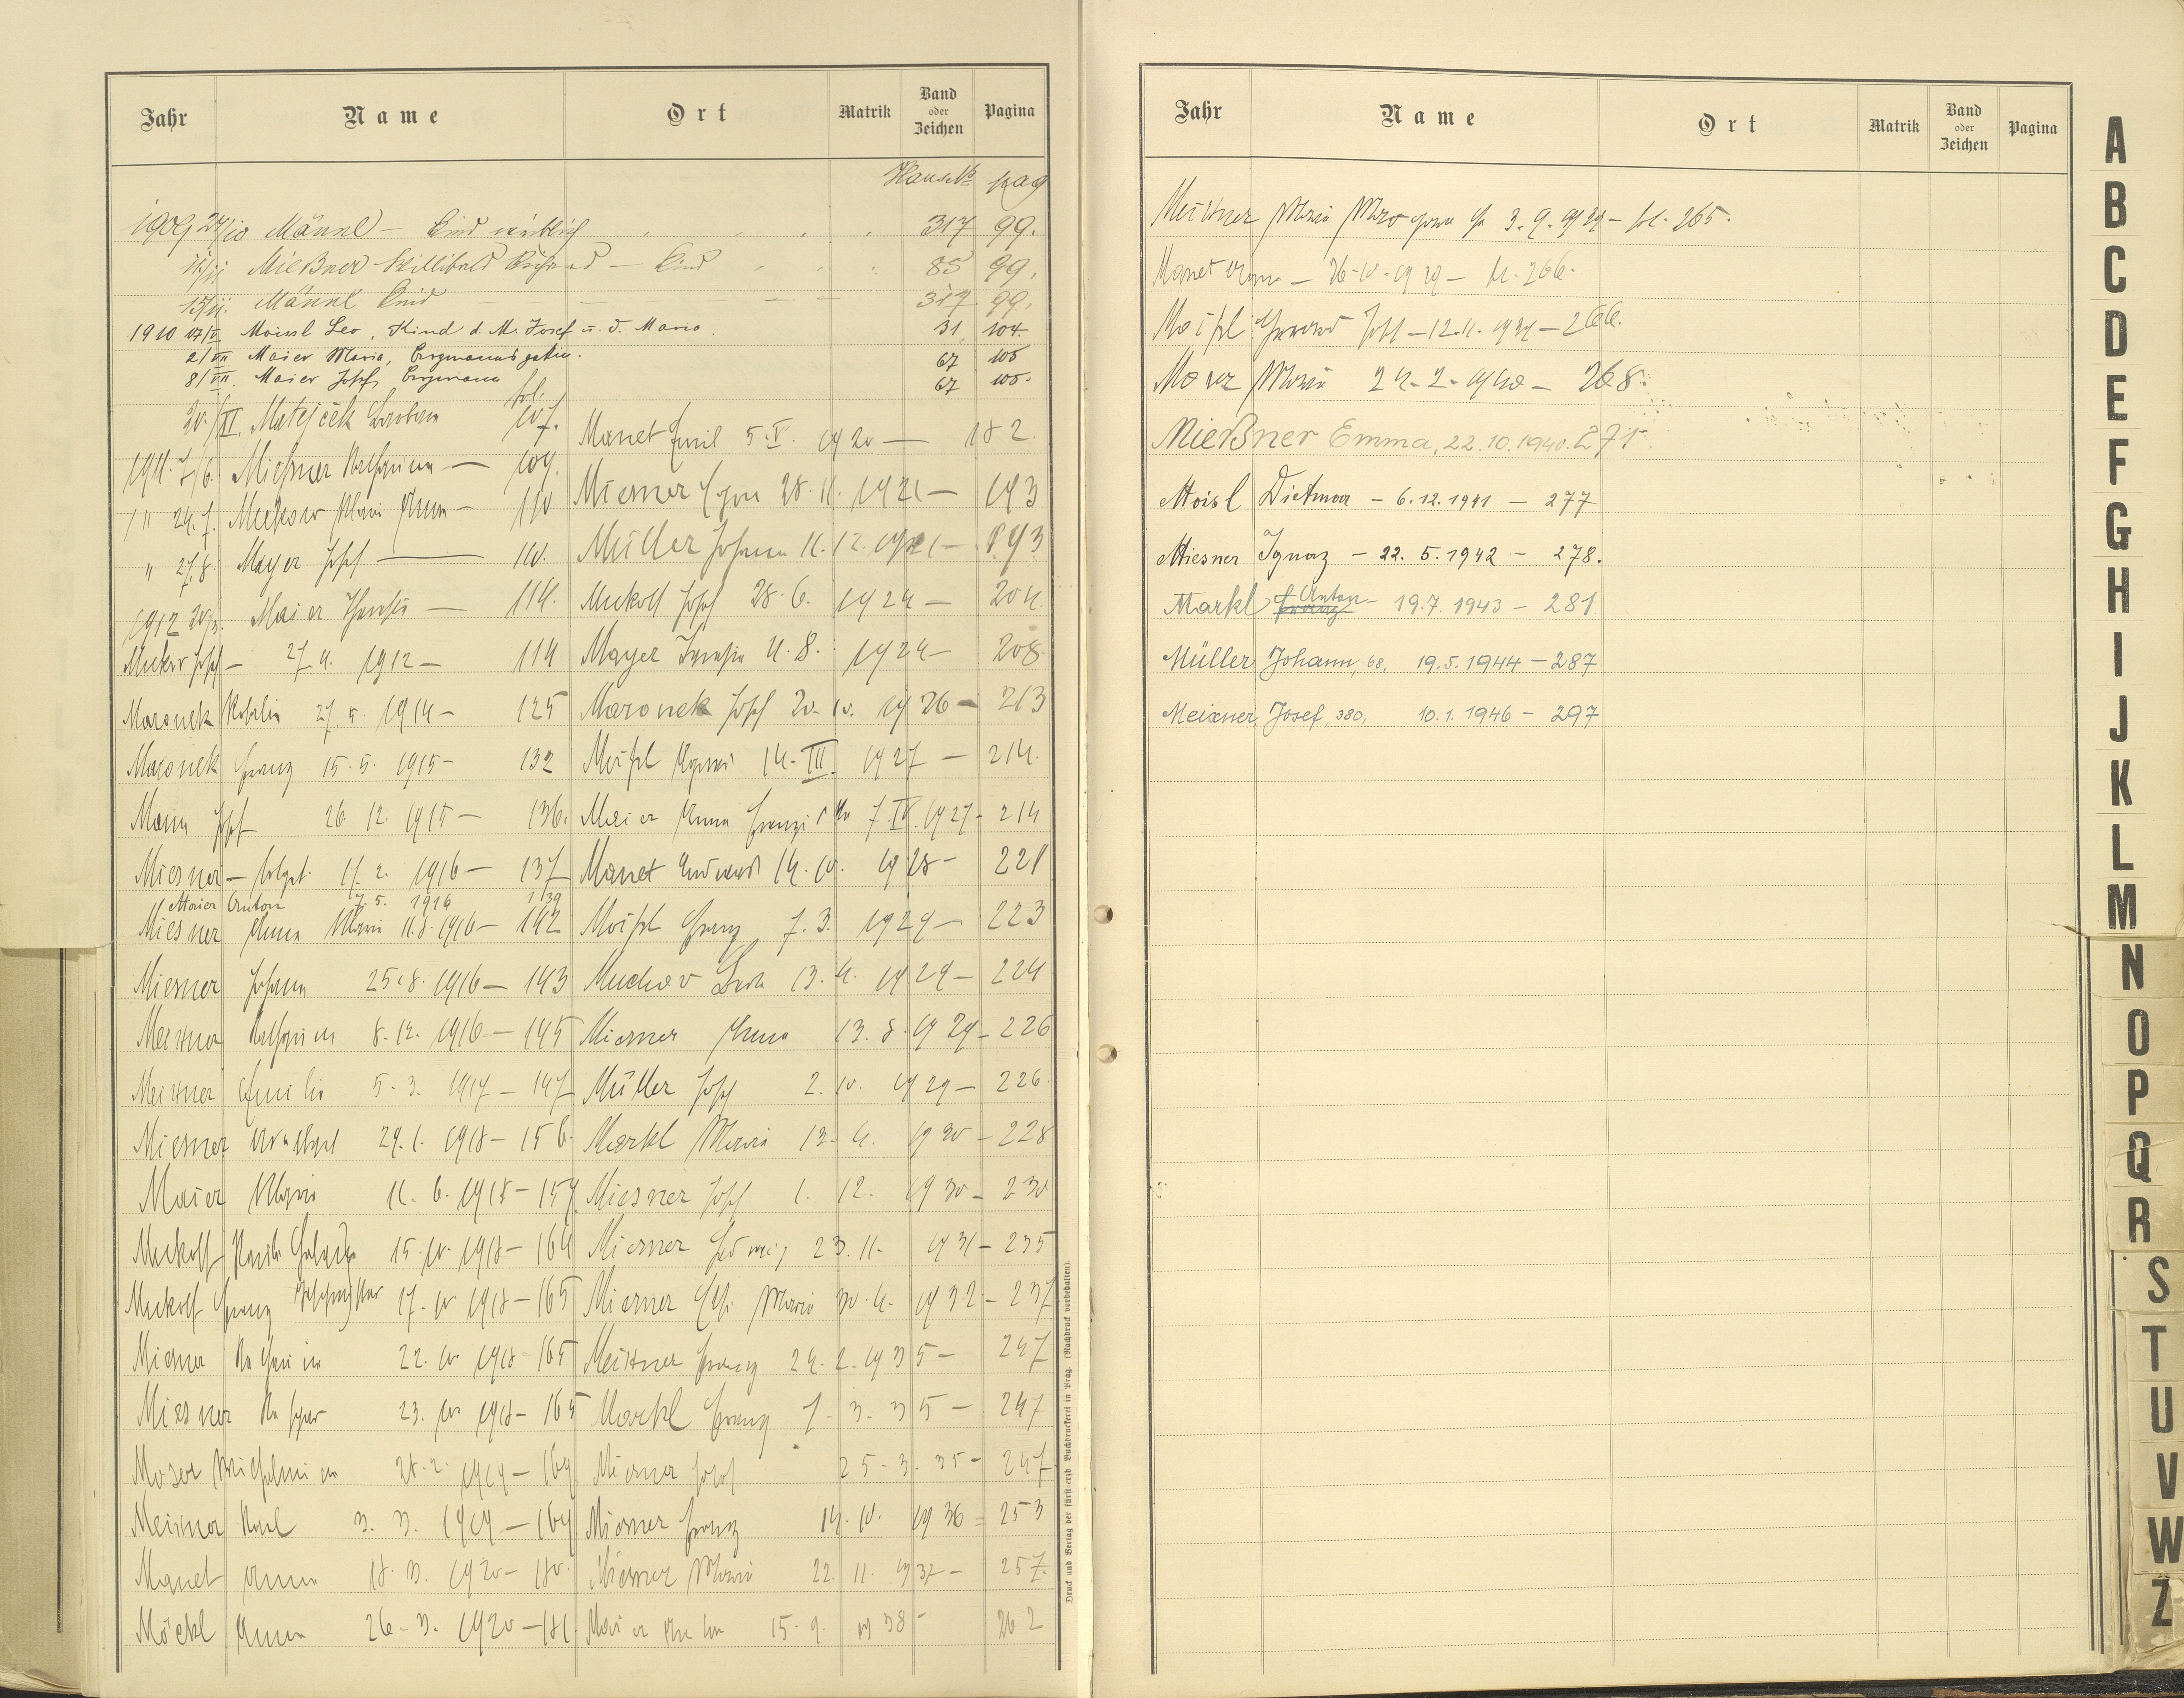 Jahr Name Ort Matrik Band oder Zeichen Pagina
Haus № pag
1909 24/10 Männl — Kind weiblich 317 99.
Mießner Willibald Richard — Kind 85 99.
15/11. Männl Kind 317 99.
1910 17/V Moissl Leo, Kind d. M. Josef u. d. Maria. 31 104
2/VII Maier Maria, Bergmannsgattin. 67 105
8/VII. Maier Josef, Bergmann 67 105.
fol.
20./XI. Matejček Barbara 107.
1911. 7/6. Miesner Katharina — 109.
" 24.7. Muckow Maria Anna — 110
" 27.8. Mayer Josef — 110.
1912 Maier Theresia — 114.
Josef — 27.4. 1912 — 114
Maronek Rosalia 27.5. 1914 — 125
Maronek Franz 15.5. 1915 — 132
Mann Josef 26.12. 1915 — 136.
Miesner — totgeb. 11.2. 1916 — 137
Maier Anton 7.5. 1916 139
Miesner Anna Maria 11.8. 1916 — 142
Miesner Johann 25.8. 1916 — 143
Meixner Katharina 8.12. 1916 — 145
Meixner Emilie 5.3. 1917 — 147
Miesner 29.1. 1918 — 156.
Maier Maria 11.6. 1918 — 159
Muckoff 15.10. 1918 — 164
Muckoff Franz 17.10. 1918 — 165
Miesner Katharina 22.10. 1918 — 165
Miesner Kaspar 23.10. 1918 — 165
Moser Wilhelmina 28.2. 1919 — 169.
Meixner Karl 3.3. 1919 — 169
Manet Anna 18.3. 1920 — 180.
Möckl Anna 26.3. 1920 — 181
Manet Emil 5.V. 1920 — 182.
Miesner Egon 28.11. 1921 — 193
Müller Johann 11.12. 1921 — 193
Muckoff Josef 28.6. 1924 — 204.
Mayer 4.8. 1924 — 208
Maronek Josef 20.10. 1926 — 213
Moißl 14.III. 1927 — 214.
Maier Anna Franziska 7.IV. 1927 — 214
Manet Eduard 14.10. 1928 — 221
Moißl Franz 7.3. 1929 — 223
13.4. 1929 — 224
Miesner Anna 13.8. 1929 — 226
Müller Josef 2.10. 1929 — 226.
Markl Maria 13.4. 1930 — 228
Miesner Josef 1.12. 1930 — 230
Miesner Hedwig 23.11. 1931 — 235
Miesner Maria 30.4. 1932 — 237
Meixner Franz 24.2. 1935 — 247
Markl Franz 1.3.35 — 247
Miesner Josef 25.3.35 — 247
Miesner Franz 14.10. 1936 = 253
Miesner Maria 22.11. 1937 — 257.
Maier Anton 15.9. 1938 — 262
Druck und Verlag der fürst-erzb. Buchdruckerei in Prag. (Nachdruck vorbehalten).
Jahr Name Ort Matrik Band oder Zeichen Pagina
Meixner Maria 3.9.1939 — fol. 265.
Manet Anna — 26.10.1939 — fol. 266.
Moißl Josef — 12.11.1939 — 266.
Maria 24.2.1940 — 268.
Mießner Emma, 22.10.1940. 271
Moisl Dietmar — 6.12.1941 — 277
Miesner Ignaz — 22.5.1942 — 278.
Markl Franz Anton — 19.7.1943 — 281
Müller Johann, 68, 19.5.1944 — 287
Meixner, Josef, 380, 10.1.1946 — 297
A
B
C
D
E
F
G
H
I
J
K
L
M
N
O
P
Q
R
S
T
U
V
W
Z